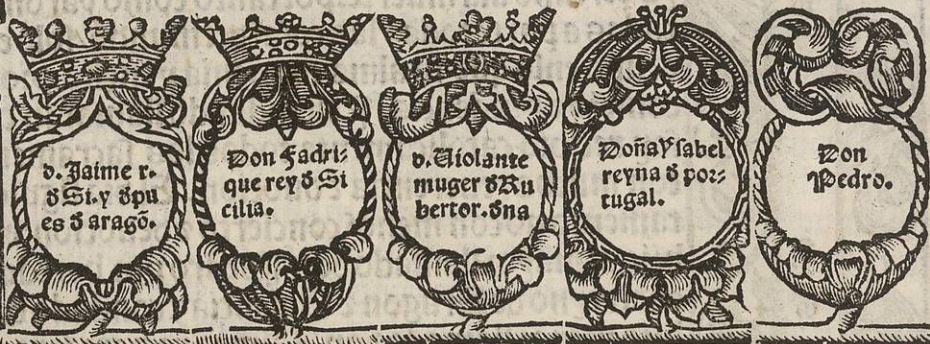 d. Jaime r.
đ Si. y đpu
es đ aragõ.
Don Fadri-
que rey đ Si
cilia.
d. Uiolante
muger đ Ru
bertor. đ na
Doña Ysabel
reyna đ por-
tugal.
Don
Pedro.